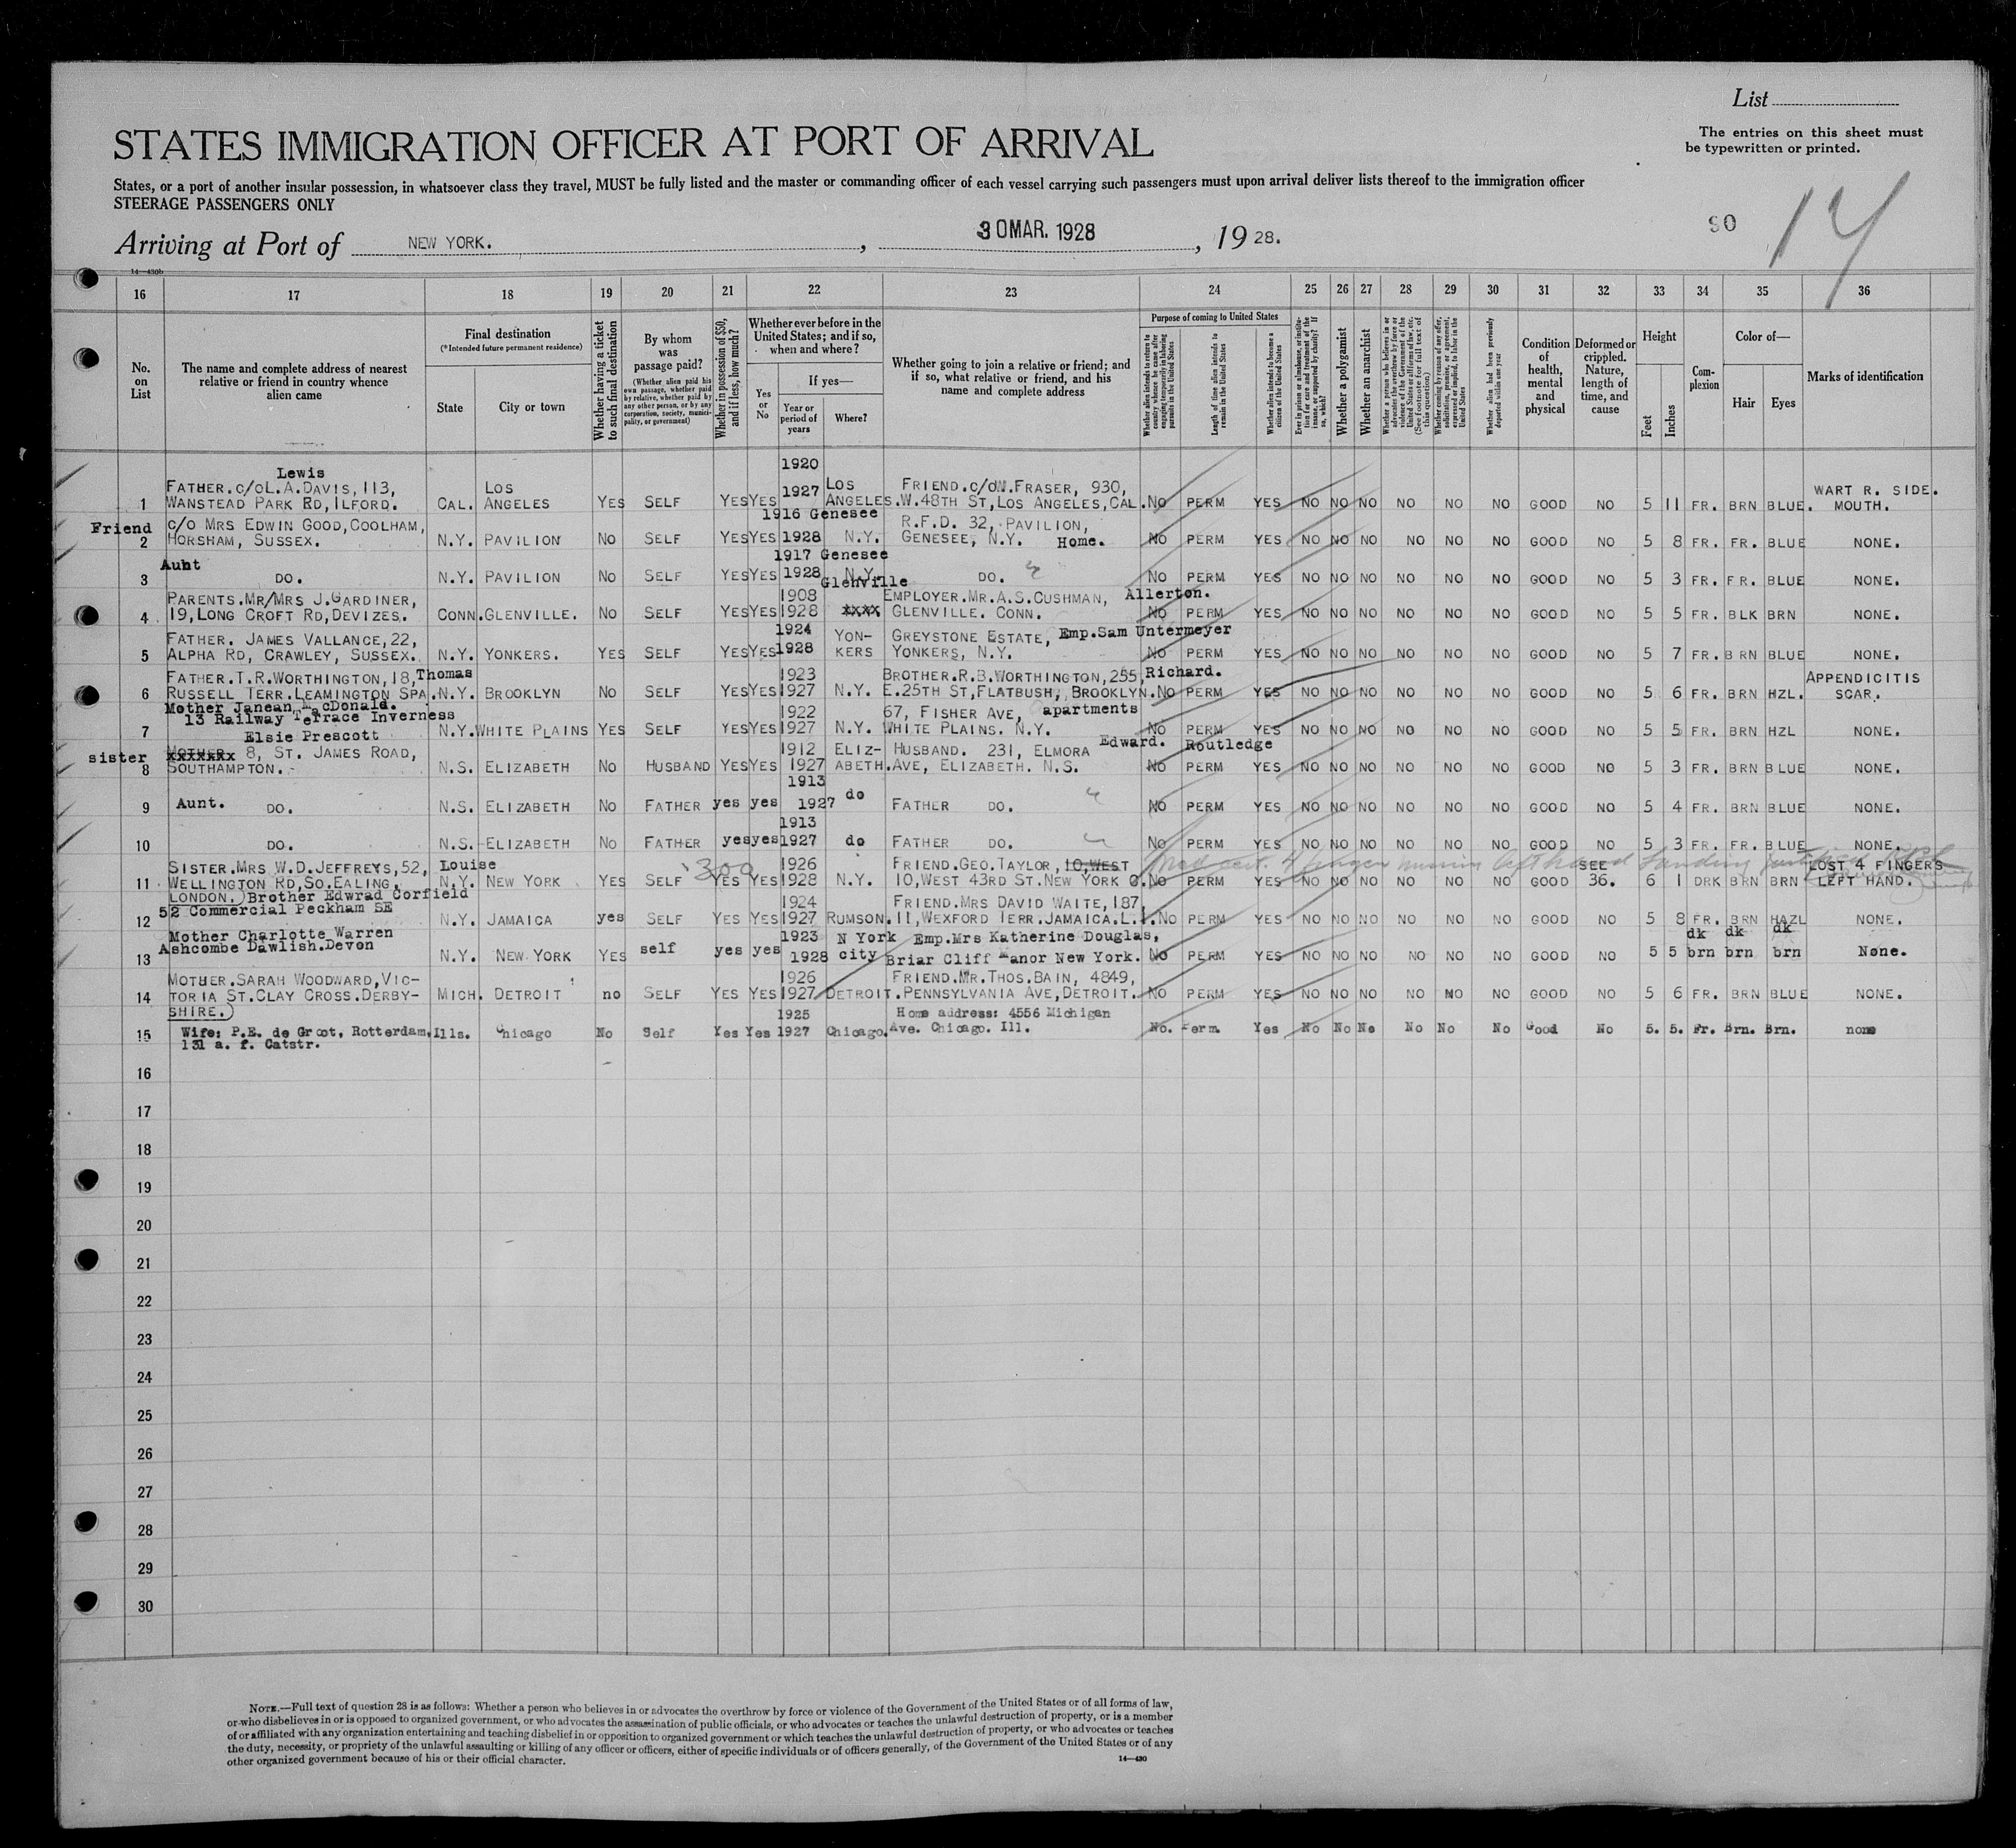 List
The entries on this sheet must
be typewritten or printed.
STATES IMMIGRATION OFFICER AT PORT OF ARRIVAL
States, or a port of another insular possession, in whatsoever class they travel, MUST be fully listed and the master or commanding officer of each vessel carrying such passengers must upon arrival deliver lists thereof to the immigration officer
STEERAGE PASSENGERS ONLY
90 14
Arriving at Port of NEW YORK. , 30 MAR. 1928 , 19 28.
14—430b
16 17 18 19 20 21 22 23 24 25 26 27 28 29 30 31 32 33 34 35 36
No. on List
The name and complete address of nearest relative or friend in country whence alien came
Final destination
(*Intended future permanent residence)
State
City or town
Whether having a ticket to such final destination
By whom was passage paid?
(Whether alien paid his own passage, whether paid by relative, whether paid by any other person, or by any corporation, society, municipality, or government)
Whether in possession of $50, and if less, how much?
Whether ever before in the United States; and if so, when and where?
Yes or No
If yes—
Year or period of years
Where?
Whether going to join a relative or friend; and if so, what relative or friend, and his name and complete address
Purpose of coming to United States
Whether alien intends to return to country whence he came after engaging temporarily in laboring pursuits in the United States
Length of time alien intends to remain in the United States
Whether alien intends to become a citizen of the United States
Ever in prison or almshouse, or institution for care and treatment of the insane, or supported by charity? If so, which?
Whether a polygamist
Whether an anarchist
Whether a person who believes in or advocates the overthrow by force or violence of the Government of the United States or all forms of law, etc. (See footnote for full text of this question)
Whether coming by reason of any offer, solicitation, promise, or agreement, expressed or implied, to labor in the United States
Whether alien had been previously deported within one year
Condition of health, mental and physical
Deformed or crippled. Nature, length of time, and cause
Height
Feet
Inches
Complexion
Color of—
Hair
Eyes
Marks of identification
Lewis 1920
FATHER. c/o L.A.DAVIS, 113, LOS 1927 LOS FRIEND. c/o W. FRASER, 930, WART R. SIDE.
1 WANSTEAD PARK RD, ILFORD. CAL. ANGELES YES SELF YES YES ANGELES. W. 48TH ST, LOS ANGELES, CAL. NO PERM YES NO NO NO NO NO NO GOOD NO 5 11 FR. BRN BLUE. MOUTH.
Friend c/o MRS EDWIN GOOD, COOLHAM, 1916 Genesee R.F.D. 32, PAVILION,
2 HORSHAM, SUSSEX. N.Y. PAVILION NO SELF YES YES 1928 N.Y. GENESEE, N.Y. Home. NO PERM YES NO NO NO NO NO NO GOOD NO 5 8 FR. FR. BLUE NONE.
Aunt 1917 Genesee
3 DO. N.Y. PAVILION NO SELF YES YES 1928 N.Y. DO. NO PERM YES NO NO NO NO NO NO GOOD NO 5 3 FR. FR. BLUE NONE.
PARENTS. MR/MRS J. GARDINER, 1908 Glenville EMPLOYER. MR. A.S. CUSHMAN, Allerton.
4 19, LONG CROFT RD, DEVIZES. CONN. GLENVILLE. NO SELF YES YES 1928 xxxx GLENVILLE. CONN. NO PERM YES NO NO NO NO NO NO GOOD NO 5 5 FR. BLK BRN NONE.
FATHER. JAMES VALLANCE, 22, 1924 YON- GREYSTONE ESTATE, Emp. Sam Untermeyer
5 ALPHA RD, CRAWLEY, SUSSEX. N.Y. YONKERS. YES SELF YES YES 1928 KERS YONKERS, N.Y. NO PERM YES NO NO NO NO NO NO GOOD NO 5 7 FR. BRN BLUE NONE.
FATHER. T.R. WORTHINGTON, 18, Thomas 1923 BROTHER. R.B. WORTHINGTON, 255, Richard. APPENDICITIS
6 RUSSELL TERR. LEAMINGTON SPA. N.Y. BROOKLYN NO SELF YES YES 1927 N.Y. E. 25TH ST, FLATBUSH, BROOKLYN. NO PERM YES NO NO NO NO NO NO GOOD NO 5 6 FR. BRN HZL. SCAR.
Mother Janean MacDonald.
13 Railway Terrace Inverness 1922 67, FISHER AVE, apartments
7 N.Y. WHITE PLAINS YES SELF YES YES 1927 N.Y. WHITE PLAINS. N.Y. NO PERM YES NO NO NO NO NO NO GOOD NO 5 5 FR. BRN HZL NONE.
Elsie Prescott
sister MOTHER 8, ST. JAMES ROAD, 1912 ELIZ- HUSBAND. 231, ELMORA Edward. Routledge
8 SOUTHAMPTON. N.S. ELIZABETH NO HUSBAND YES YES 1927 ABETH. AVE, ELIZABETH. N.S. NO PERM YES NO NO NO NO NO NO GOOD NO 5 3 FR. BRN BLUE NONE.
1913
9 Aunt. DO. N.S. ELIZABETH NO FATHER yes yes 1927 do FATHER DO. NO PERM YES NO NO NO NO NO NO GOOD NO 5 4 FR. BRN BLUE NONE.
1913
10 DO. N.S. ELIZABETH NO FATHER yes yes 1927 do FATHER DO. NO PERM YES NO NO NO NO NO NO GOOD NO 5 3 FR. FR. BLUE NONE.
SISTER. MRS W.D. JEFFREYS, 52, Louise 300 1926 FRIEND. GEO. TAYLOR, 10, WEST SEE LOST 4 FINGERS
11 WELLINGTON RD, SO. EALING, N.Y. NEW YORK YES SELF YES YES 1928 N.Y. 10, WEST 43RD ST. NEW YORK C. NO PERM YES NO NO NO NO NO NO GOOD 36. 6 1 DRK BRN BRN LEFT HAND.
LONDON.) Brother Edwrad Corfield 1924 FRIEND. MRS DAVID WAITE, 187,
12 52 Commercial Peckham SE N.Y. JAMAICA yes SELF YES YES 1927 RUMSON. 11, WEXFORD TERR. JAMAICA. L.I. NO PERM YES NO NO NO NO NO NO GOOD NO 5 8 FR. BRN HAZL NONE.
Mother Charlotte Warren 1923 N York Emp. Mrs Katherine Douglas, dk dk dk
13 Ashcombe Dawlish. Devon N.Y. NEW YORK YES self yes yes 1928 city Briar Cliff Manor New York. NO PERM YES NO NO NO NO NO NO GOOD NO 5 5 brn brn brn None.
MOTHER. SARAH WOODWARD, VIC- 1926 FRIEND. MR. THOS. BAIN, 4849,
14 TORIA ST. CLAY CROSS. DERBY- MICH. DETROIT no SELF YES YES 1927 DETROIT. PENNSYLVANIA AVE, DETROIT. NO PERM YES NO NO NO NO NO NO GOOD NO 5 6 FR. BRN BLUE NONE.
SHIRE.) 1925 Home address: 4556 Michigan
15 Wife: P.E. de Groot, Rotterdam, Ills. Chicago No Self Yes Yes 1927 Chicago. Ave. Chicago. Ill. No. Perm. Yes No No No No No No Good No 5. 5. Fr. Brn. Brn. none
131 a. f. Catstr.
16
17
18
19
20
21
22
23
24
25
26
27
28
29
30
NOTE.—Full text of question 28 is as follows: Whether a person who believes in or advocates the overthrow by force or violence of the Government of the United States or of all forms of law,
or who disbelieves in or is opposed to organized government, or who advocates the assassination of public officials, or who advocates or teaches the unlawful destruction of property, or is a member
of or affiliated with any organization entertaining and teaching disbelief in or opposition to organized government or which teaches the unlawful destruction of property, or who advocates or teaches
the duty, necessity, or propriety of the unlawful assaulting or killing of any officer or officers, either of specific individuals or of officers generally, of the Government of the United States or of any
other organized government because of his or their official character. 14—430